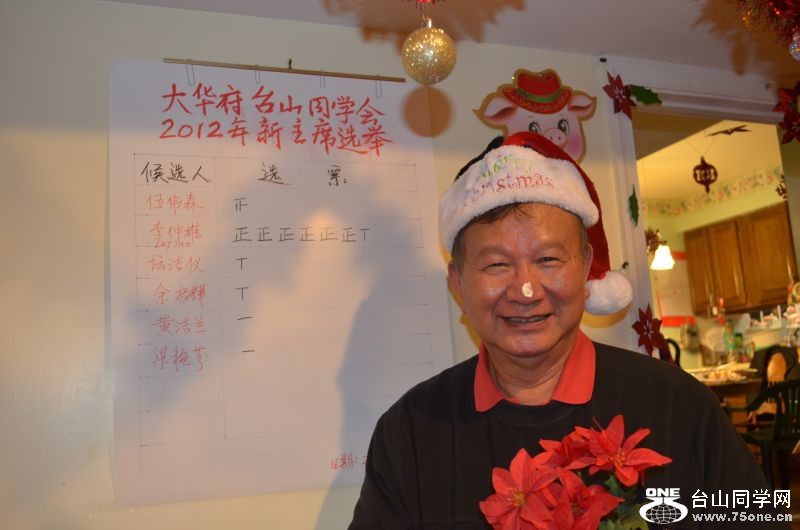 大华府台山同学会
2012年新主席选举
候选人 选 票
伍伟森 正
李仲雄 正正正正正正T
伍洁仪 T
余启辉 T
黄洁兰 一
梁艳芬 一
日期:
Merry
Christmas
ONE
台山同学网
www.75one.cn